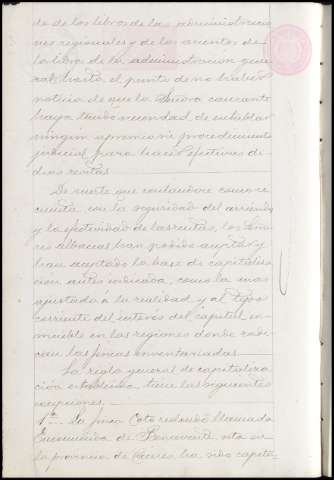 do de los libros de las administracio
nes regionales y de los asientos de
la libro de la administracion gene
ral, hasta el punto de no haber
noticia de que la Señora causante
haya tenido necesidad de entablar
ningún apremio ni procedimiento
judicial para hacer efectivas di
chas rentas.
De suerte que contandose como se
cuenta, con la seguridad del arriendo
y la efectividad de las rentas, los Seño
res albaceas han podido aceptar y
han aceptado la base de capitaliza
cion antes indicada, como la mas
ajustada a la realidad y al tipo
corriente del interés del capital in
mueble en las regiones donde radi
can las fincas inventariadas.
La regla general de capitaliza
ción establecida, tiene las siguientes
excepciones.
1ª La finca Coto redondo llamada
Encomienda de Benavente sita en
la provincia de Cáceres ha sido capita